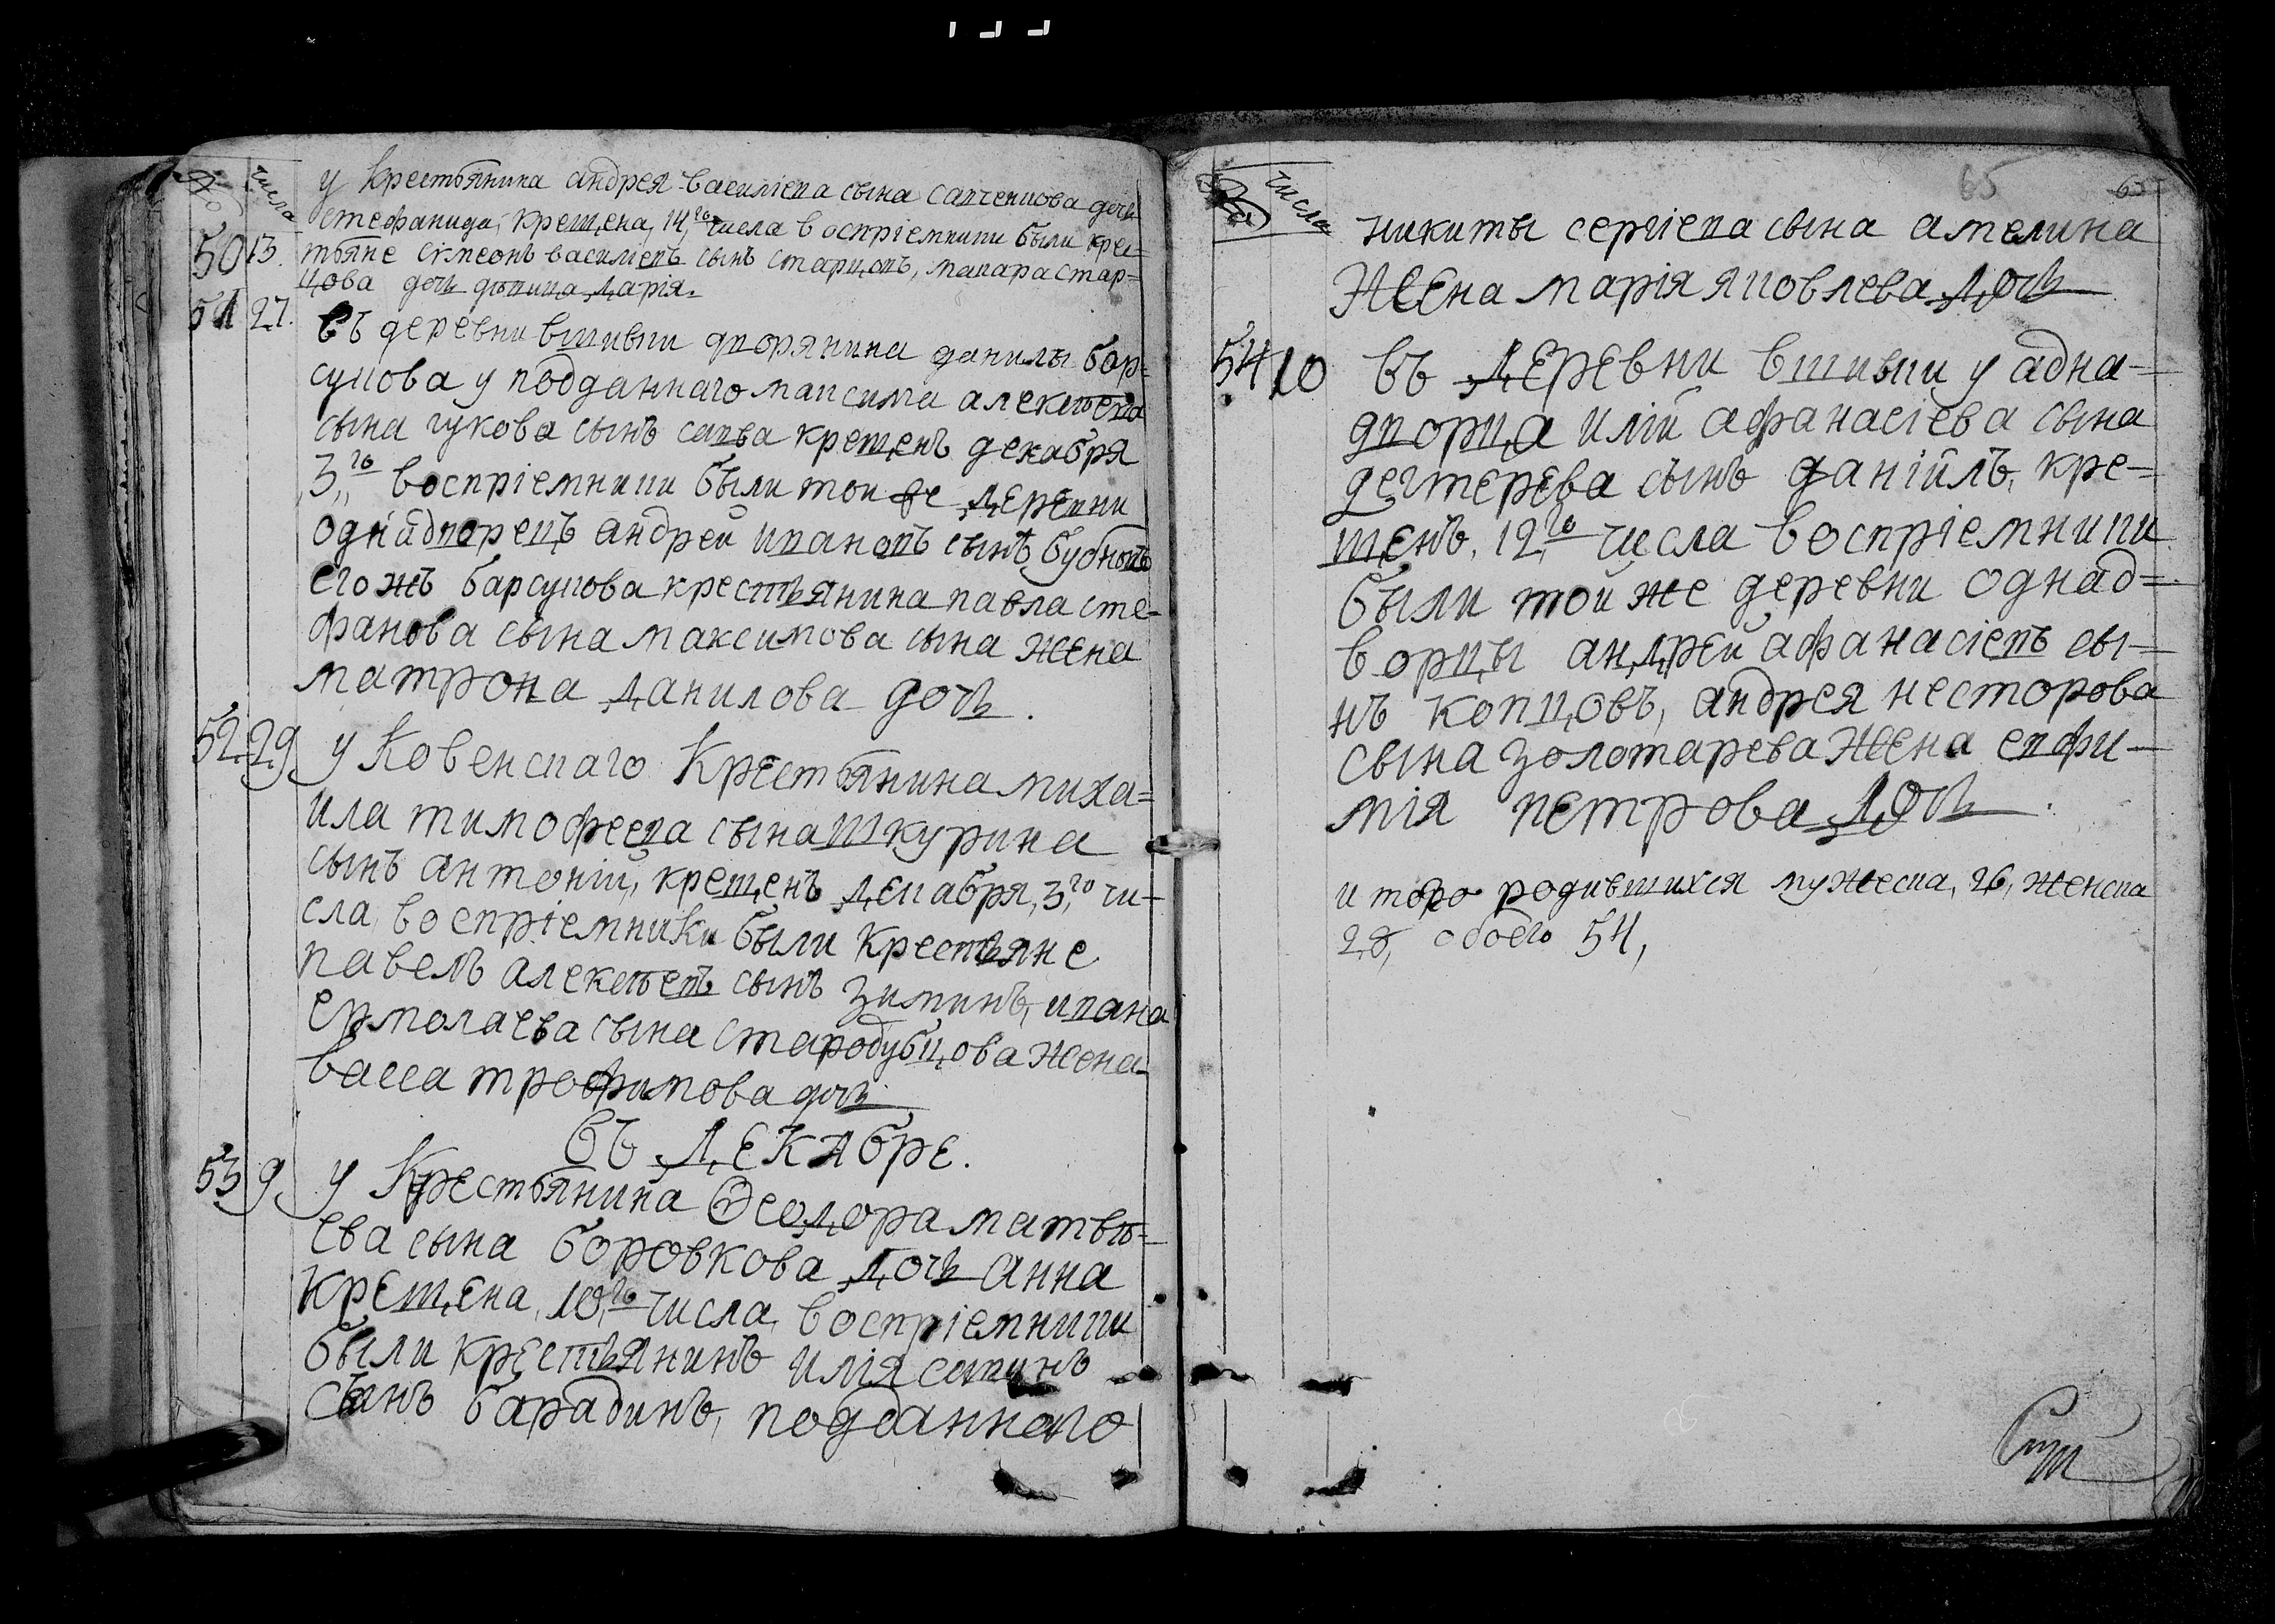 числа
у Крестьянина андрея василіева сына савченкова дочь
стефанида, крещена, 14,го числа воспріемники были крес=
50 13. тьяне сімеонъ василіевъ сынъ старцовъ, макара стар=
цова дочь дѣвица дарія.
51 27. въ деревни вшивки дворянина данилы бар=
сукова у подданнаго максима алексѣева
сына гукова сынъ савва крещенъ декабря
3,го воспріемники были той же деревни
однадворецъ андрей ивановъ сынъ бубновъ
его жъ барсукова крестьянина павла сте=
фанова сына максимова сына жена
матрона данилова дочь.
52 29 у Ковенскаго Крестьянина миха=
ила тимофеева сына шкурина
сынъ антоній, крещенъ декабря, 3,го чи-
сла, воспріемники были крестьяне
павелъ алексѣевъ сынъ зиминъ, ивана
ермолаева сына стародубцова жена
васса трофимова дочь
Въ ДЕКАбрЕ.
53 9 у Крестьянина Ѳеодора матвѣ=
ева сына боровкова дочь анна
крещена, 10,го числа, воспріемники
были крестьянинъ илія савинъ
сынъ барадинъ, подданнаго
65 65
числа
никиты сергіева сына амелина
жена марія яковлева дочь
54 10 въ деревни вшивки у адна-
дворца иліи афанасіева сына
дегтерева сынъ даніилъ, кре-
щенъ, 12,го числа воспріемники
были той же деревни однад=
ворцы андрей афанасіевъ сы-
нъ копцовъ, андрея несторова
сына золотарева жена евфи-
мія петрова дочь.
итого родившихся мужеска, 26, женска
28, обоего 54,